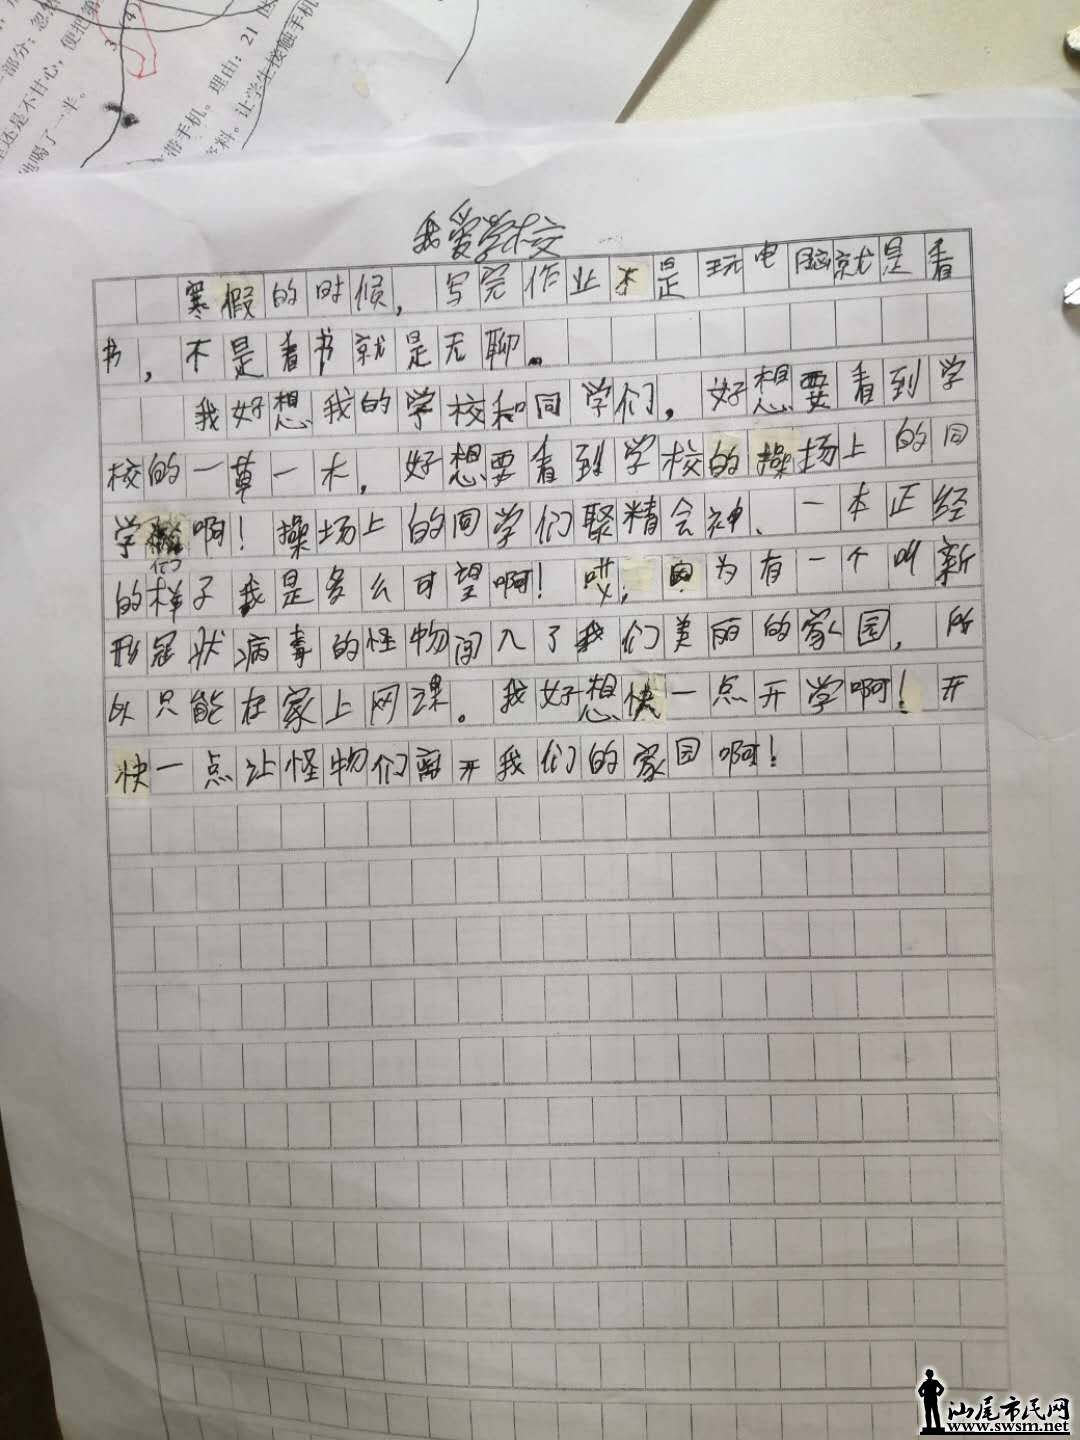 部分：忽
还是不甘心，便把第
他喝了一半。
3
4
带手机。理由：21
料。让学生接触手机
我爱学校
寒假的时候，写完作业不是玩电脑就是看
书，不是看书就是无聊。
我好想我的学校和同学们，好想要看到学
校的一草一木，好想要看到学校的操场上的同
学们啊！操场上的同学们聚精会神、一本正经
的样子我是多么可望啊！哎，因为有一个叫新
形冠状病毒的怪物闯入了我们美丽的家园，所
以只能在家上网课。我好想快一点开学啊！开
快一点让怪物们离开我们的家园啊！
汕尾市民网
www.swsm.net